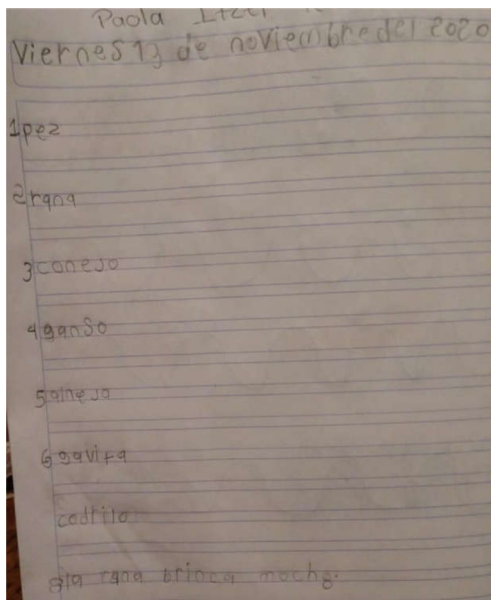 Paola Itzel
Viernes 13 de noviembre del 2020
1 pez
2 rana
3 conejo
4 ganso
5 alneja
6 gavita
codrilo
8 la rana brinca mocho.